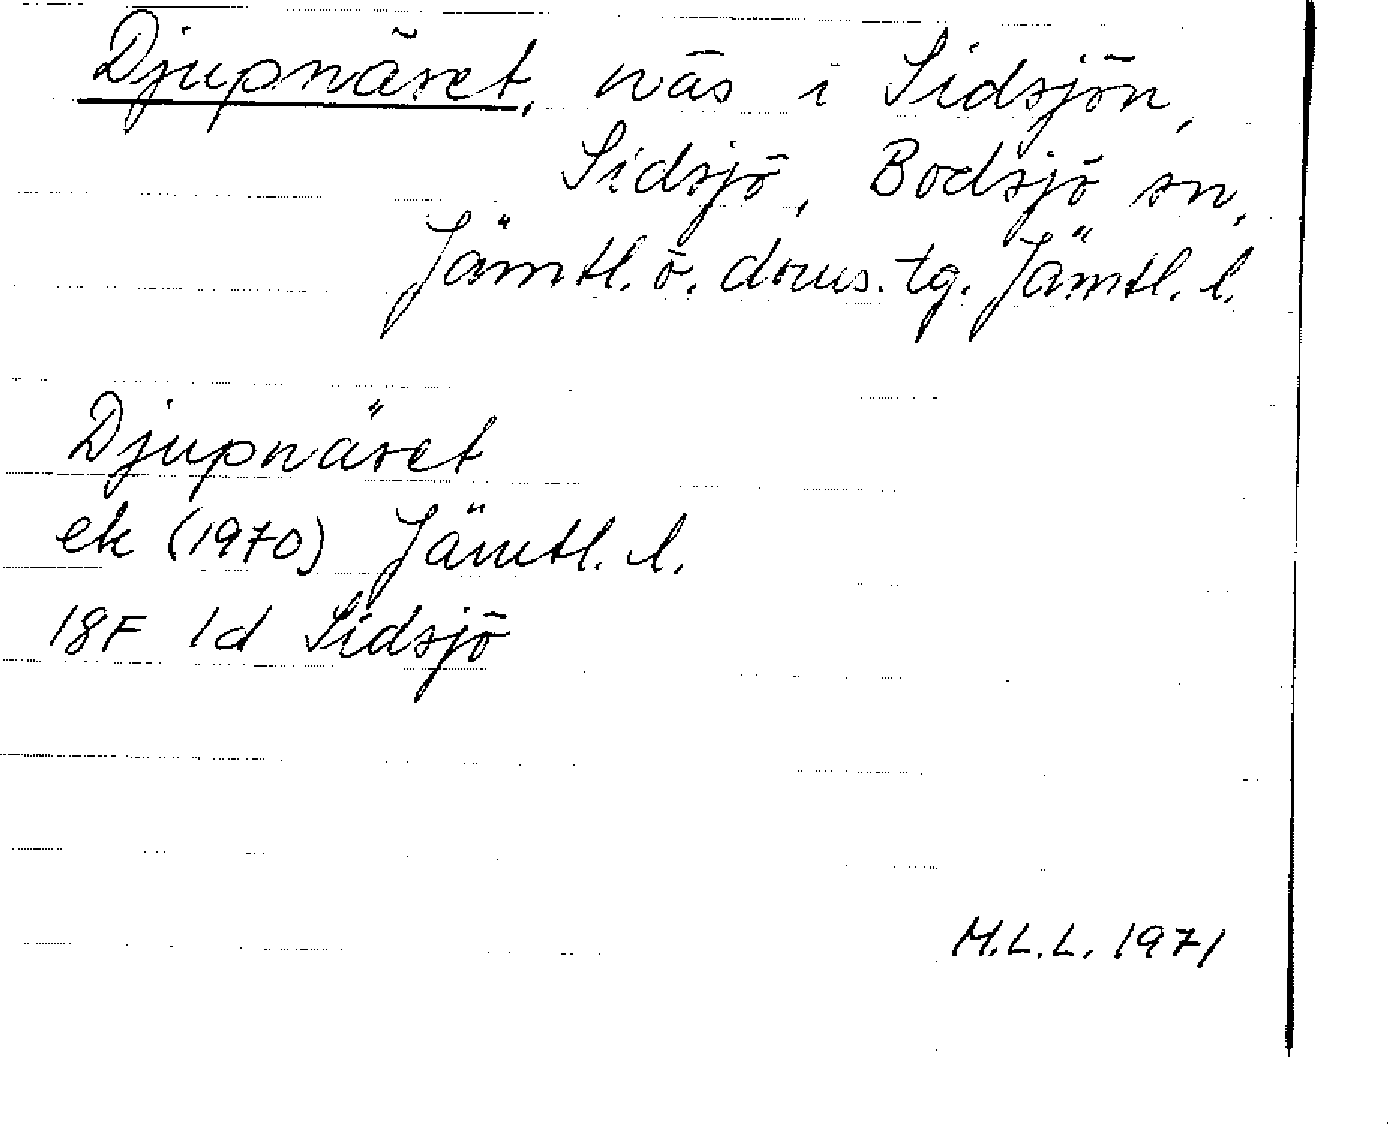 Djupnäset, näs i Sidsjön,
Sidsjö, Bodsjö sn,
Jämtl. ö. doms. tg. Jämtl. l.
Djupnäset
ek (1970) Jämtl. l.
18F 1d Sidsjö
M.L.L. 1971